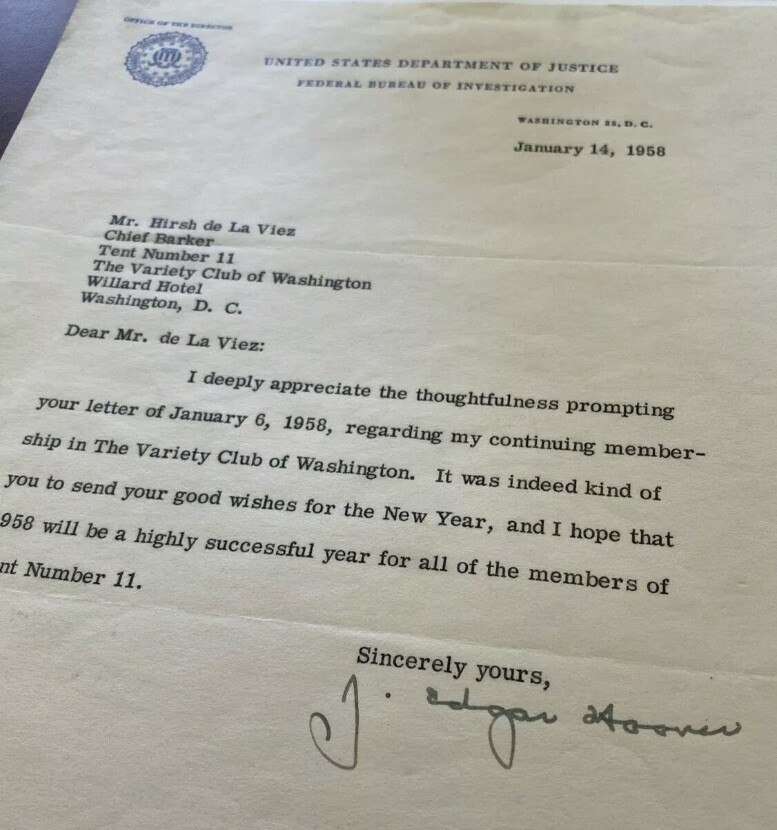 OFFICE OF THE DIRECTOR
UNITED STATES DEPARTMENT OF JUSTICE
FEDERAL BUREAU OF INVESTIGATION
WASHINGTON 25, D. C.
January 14, 1958
Mr. Hirsh de La Viez
Chief Barker
Tent Number 11
The Variety Club of Washington
Willard Hotel
Washington, D. C.
Dear Mr. de La Viez:
I deeply appreciate the thoughtfulness prompting
your letter of January 6, 1958, regarding my continuing member-
ship in The Variety Club of Washington. It was indeed kind of
you to send your good wishes for the New Year, and I hope that
958 will be a highly successful year for all of the members of
nt Number 11.
Sincerely yours,
J. Edgar Hoover